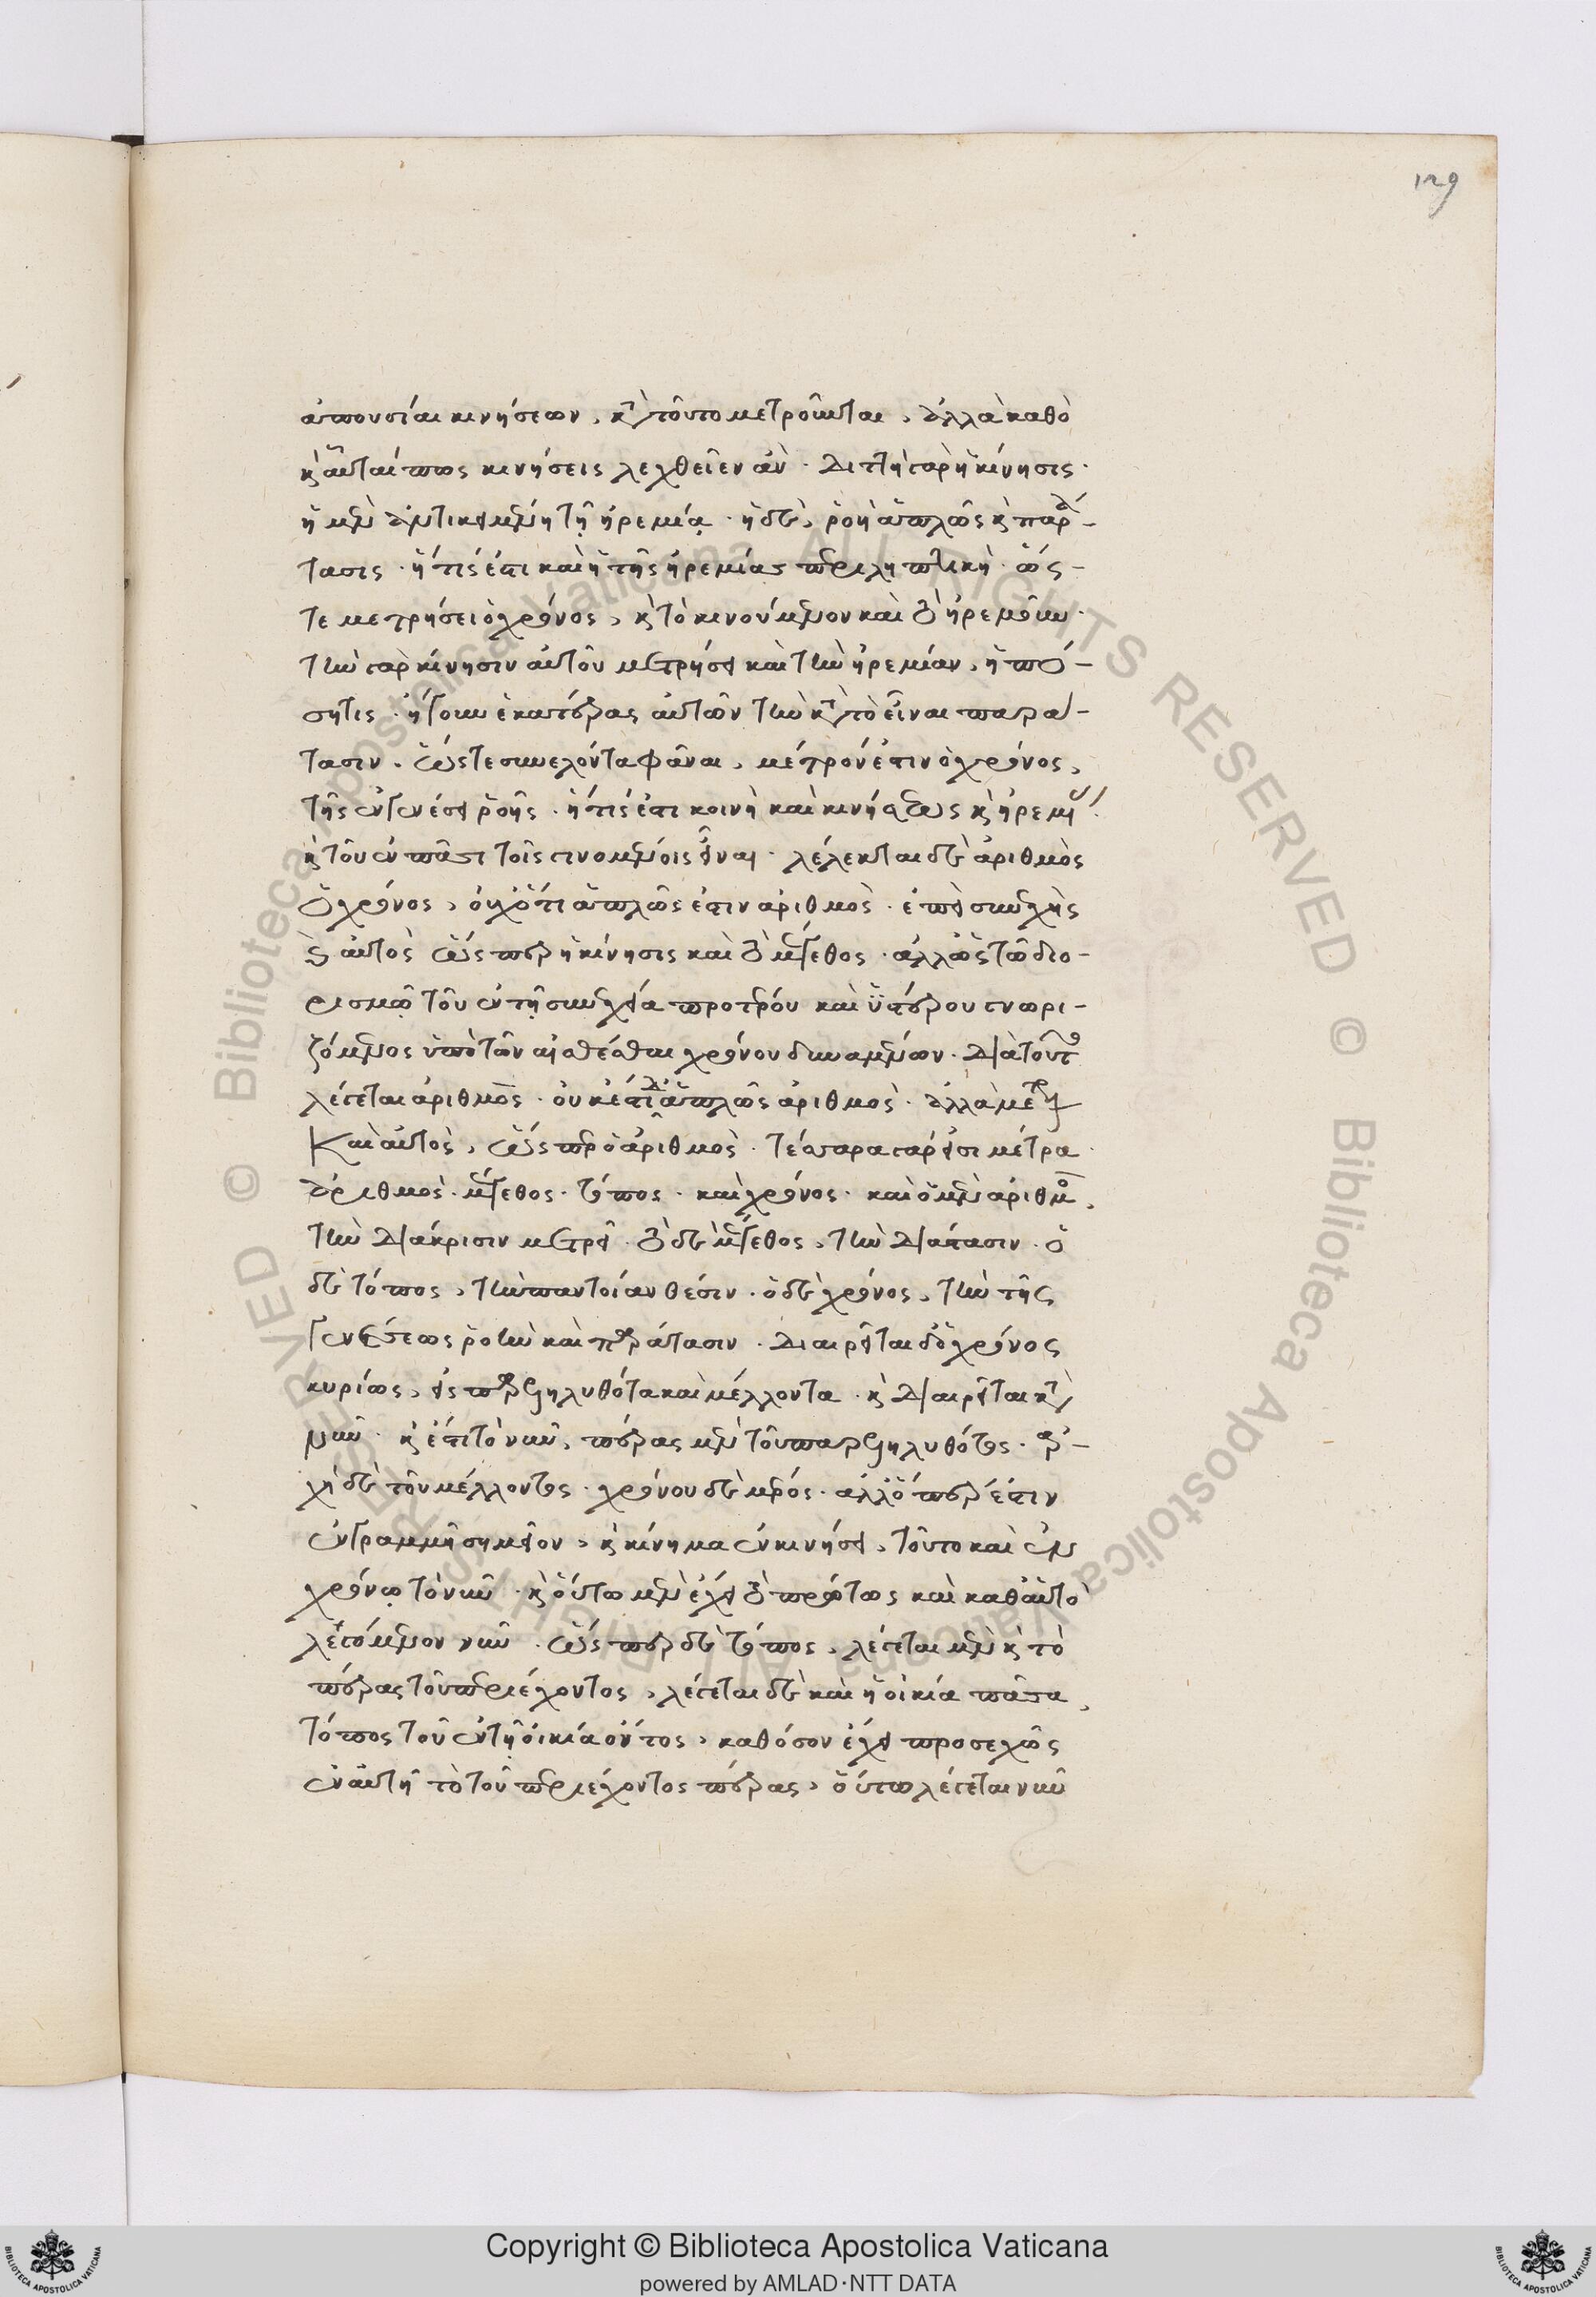 129
ἀπουσίαι κινήσεων, κατὰ τοῦτο μετροῦνται, ἀλλὰ καθὸ
καὶ αὗταί πως κινήσεις λεχθεῖεν ἂν · διττὴ γὰρ ἡ κίνησις ·
ἡ μὲν ἀντικειμένη τῇ ἠρεμίᾳ · ἡ δὲ, ῥοὴ ἁπλῶς καὶ παρά-
τασις · ἥτις ἐστι καὶ ἡ τῆς ἠρεμίας περιληπτικὴ · ὥσ-
τε μετρήσει ὁ χρόνος, καὶ τὸ κινούμενον καὶ τὸ ἠρεμοῦν ·
τὴν γὰρ κίνησιν αὐτοῦ μετρήσει καὶ τὴν ἠρεμίαν, ἣ πό-
ση τις · ἤγουν ἑκατέρας αὐτῶν τὴν κατὰ τὸ εἶναι παρά-
τασιν · ὥστε συνελόντα φάναι, μέτρον ἐστιν ὁ χρόνος,
τῆς ἐν γενέσει ῥοῆς · ἥτις ἐστι κοινὴ καὶ κινήσεως καὶ ἠρεμί
καὶ τοῦ ἐν πᾶσι τοῖς γινομένοις εἶναι · λέλεκται δὲ ἀριθμὸς
ὁ χρόνος, οὐχ ὅτι ἁπλῶς ἐστιν ἀριθμὸς · ἐπεὶ συνεχὴς
καὶ αὐτὸς ὥσπερ ἡ κίνησις καὶ τὸ μέγεθος · ἀλλ' ὡς τῷ διο-
ρισμῷ τοῦ ἐν τῇ συνεχείᾳ προτέρου καὶ ὑστέρου γνωρι-
ζόμενος ὑπὸ τῶν αἰσθέσθαι χρόνου δυναμένων · διὰ τοῦτο
λέγεται ἀριθμὸς · οὐκ ἔστι δὲ ἁπλῶς ἀριθμὸς · ἀλλὰ μέτρον
καὶ αὐτὸς, ὥσπερ ὁ ἀριθμὸς · τέσσαρα γάρ εἰσι μέτρα ·
ἀριθμὸς · μέγεθος · τόπος · καὶ χρόνος · καὶ ὁ μὲν ἀριθμὸς,
τὴν διάκρισιν μετρεῖ · τὸ δὲ μέγεθος, τὴν διάστασιν · ὁ
δὲ τόπος, τὴν παντοίαν θέσιν · ὁ δὲ χρόνος, τὴν τῆς
γενέσεως ῥοὴν καὶ παράτασιν · διαιρεῖται δὲ ὁ χρόνος
κυρίως, εἰς παρεληλυθότα καὶ μέλλοντα · καὶ διαιρεῖται κατὰ
νῦν · καὶ ἐστι τὸ νῦν, πέρας μὲν τοῦ παρεληλυθότος · ἀρ-
χὴ δὲ τοῦ μέλλοντος · χρόνου δὲ μέρος · ἀλλ' ὅπερ ἐστιν
ἐν γραμμῇ σημεῖον, καὶ κίνημα ἐν κινήσει, τοῦτο καὶ ἐν
χρόνῳ τὸ νῦν · καὶ οὕτω μὲν ἔχει τὸ πρώτως καὶ καθ' αὑτὸ
λεγόμενον νῦν · ὥσπερ δὲ τόπος, λέγεται μὲν καὶ τὸ
πέρας τοῦ περιέχοντος, λέγεται δὲ καὶ ἡ οἰκία πᾶσα,
τόπος τοῦ ἐν τῇ οἰκίᾳ ὄντος, καθόσον ἔχει προσεχῶς
ἐν αὑτῇ τὸ τοῦ περιέχοντος πέρας, οὕτω λέγεται νῦν
Copyright © Biblioteca Apostolica Vaticana
powered by AMLAD·NTT DATA